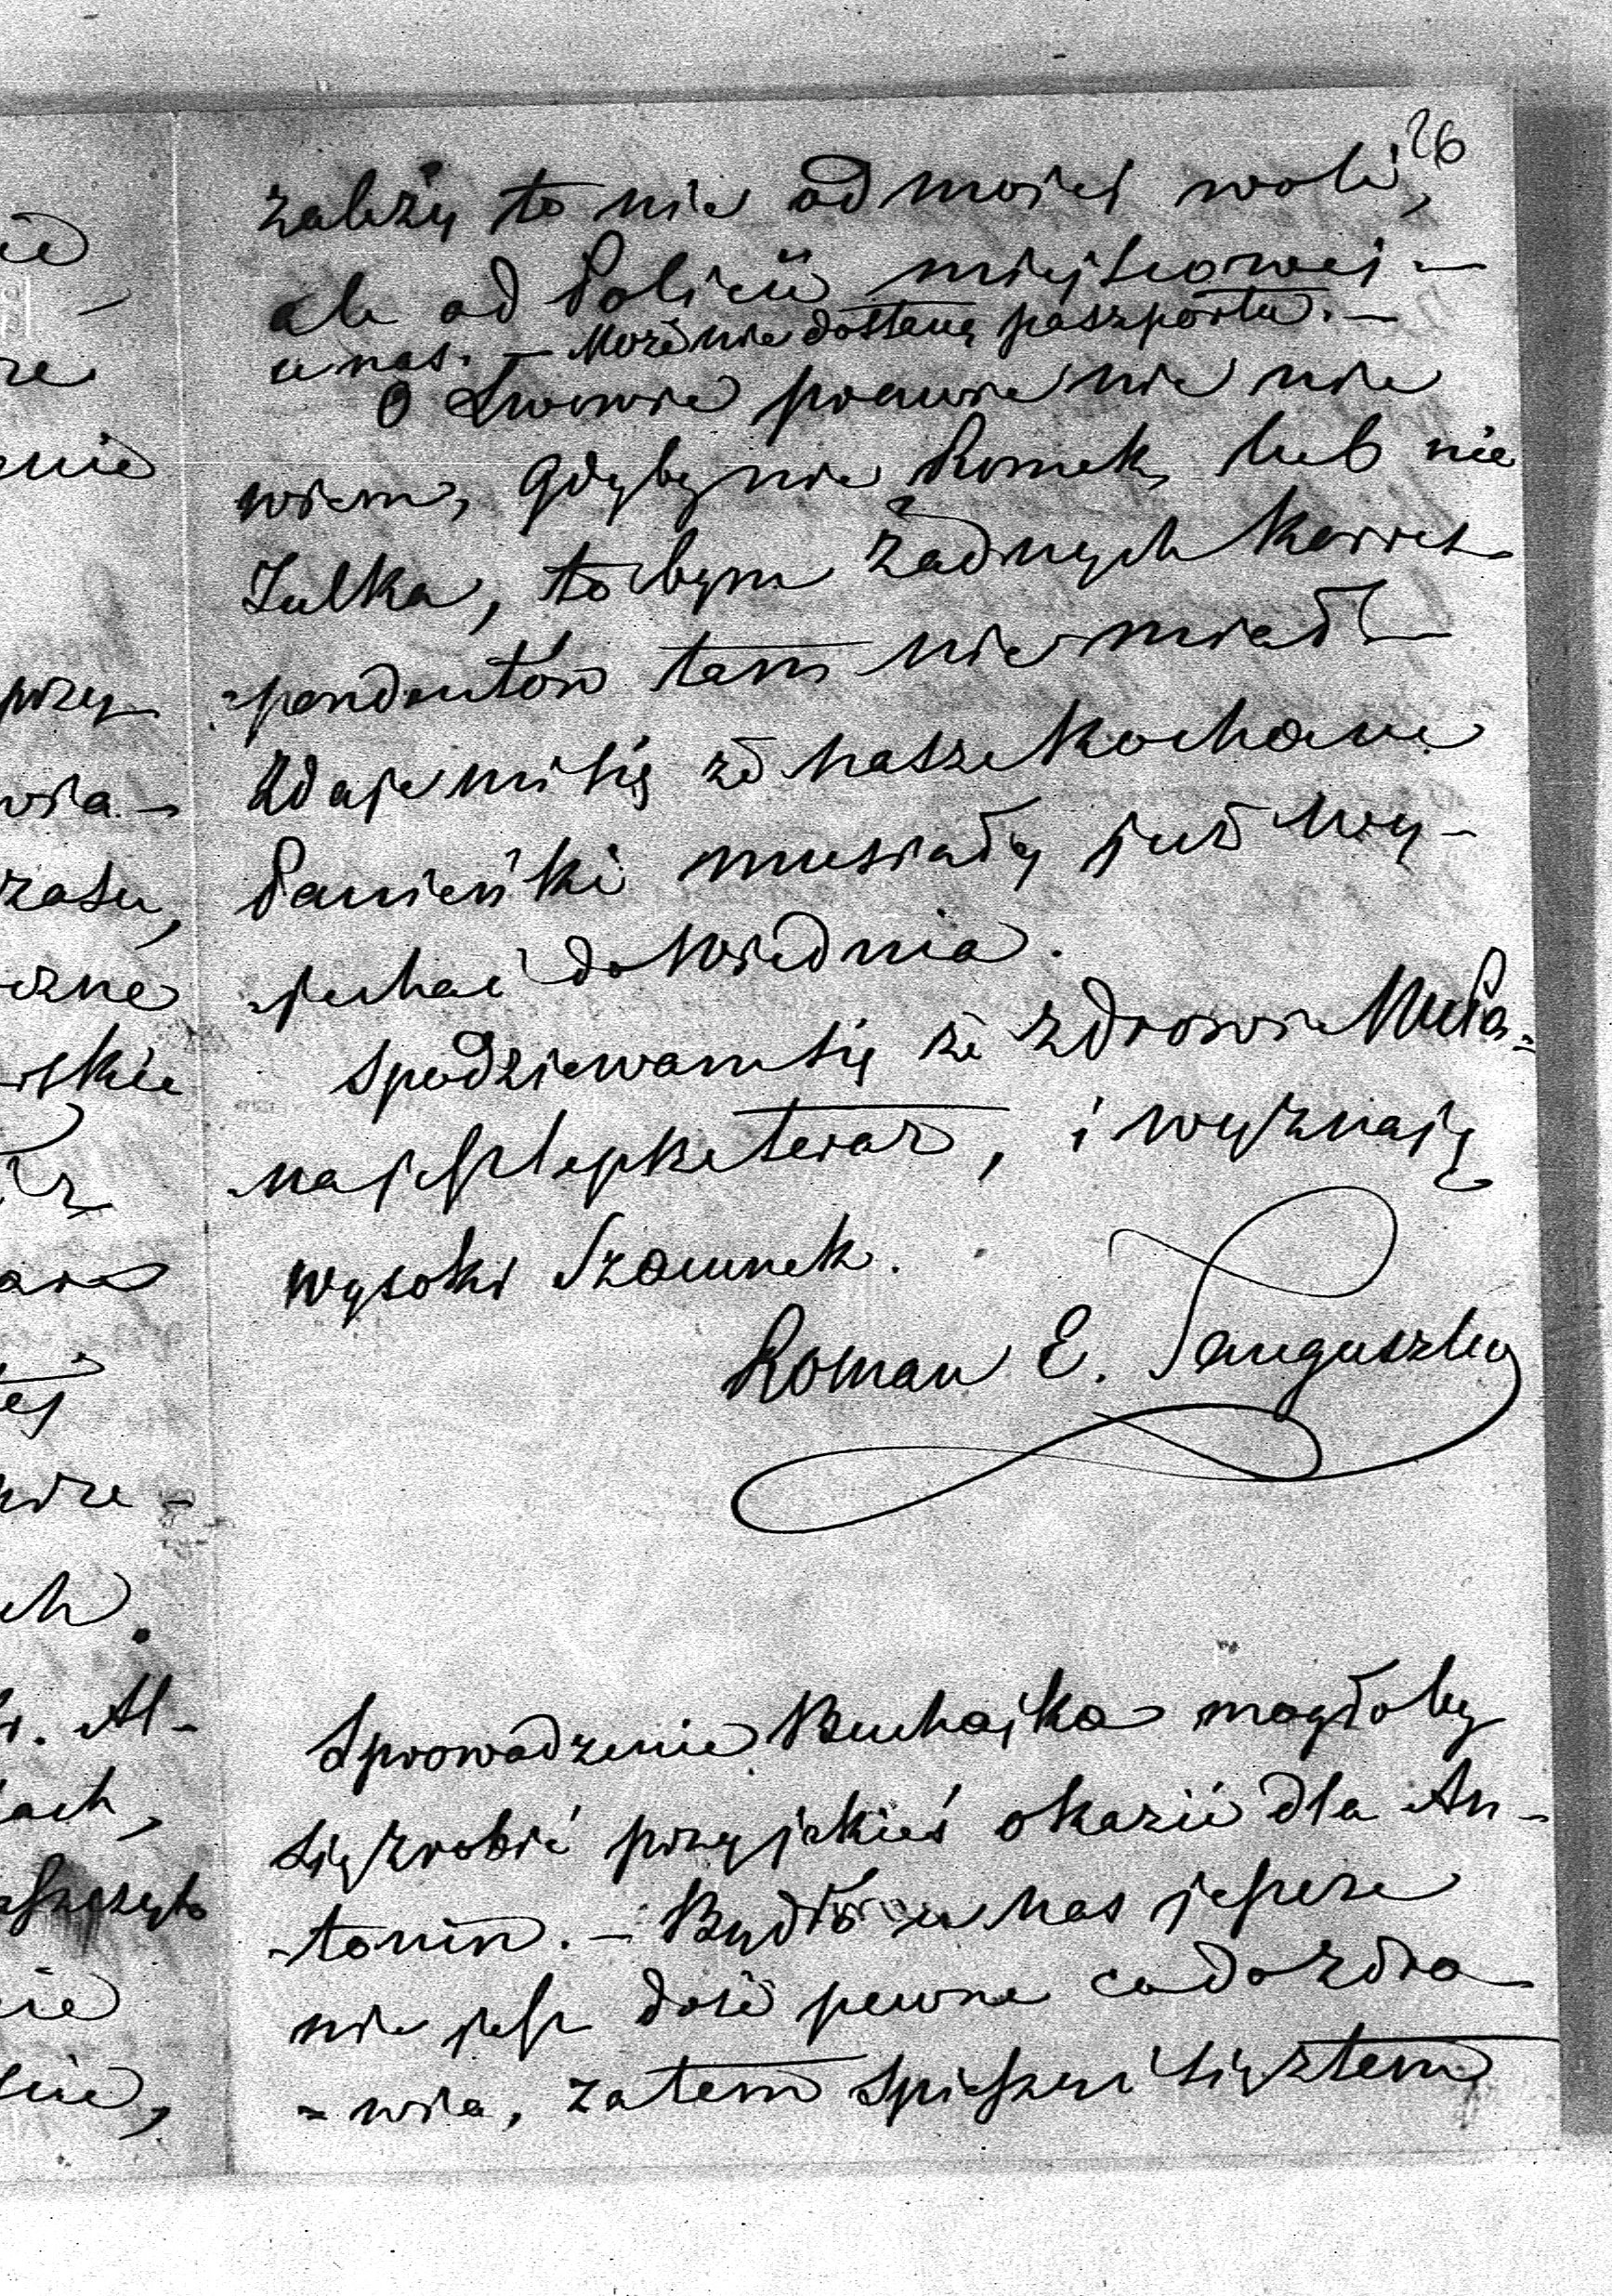 26
zależy to nie od mojej woli,
ale od Policii miejscowej —
u nas. — Może nie dostanę paszportu. —
O Lwowie prawie nic nie
wiem, gdyby nie Romek, lub nie
Julka, to bym żadnych korres-
-pondentów tam nie miał —
Zdaje mi się że nasze kochane
Panieńki musiały już wy-
-jechać do Wiednia.
Spodziewam się że zdrowie
na jest lepsze teraz, i wyznaję
wysoki Szacunek.
Roman E. Sanguszko
Sprowadzenie Buhajka mogłoby
się zrobić przy jakieś okazii dla An-
-tonin. — Bydło u nas jeszcze
nie jest dość pewne co do zdro-
-wia, zatem spieszyć się z tem